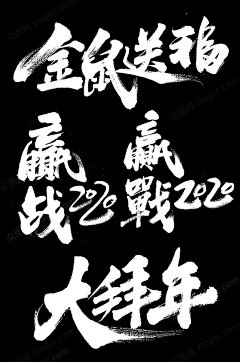 金鼠送福
赢战2020
赢戰2020
大拜年